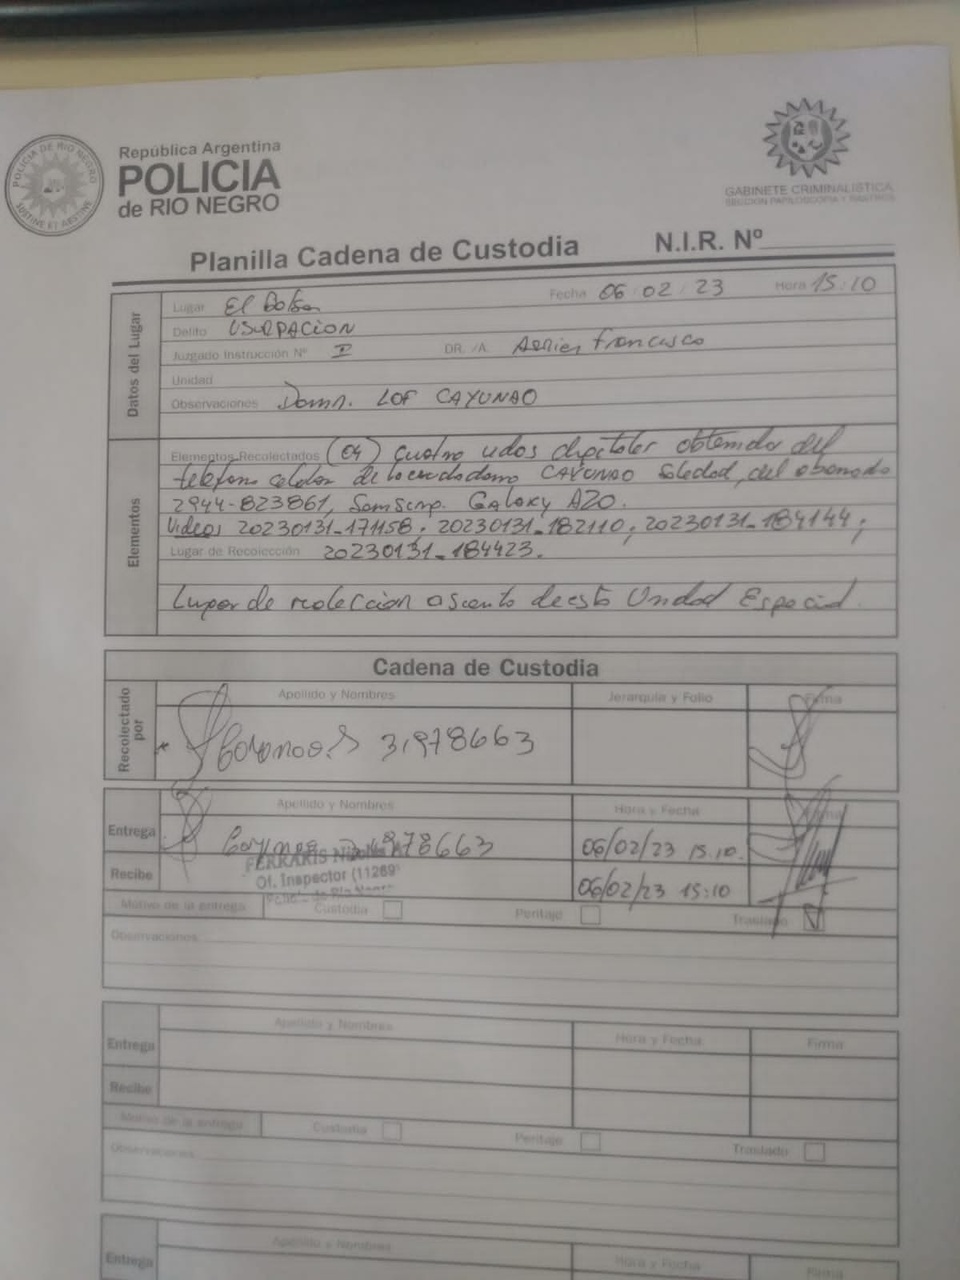 POLICIA DE RIO NEGRO
SUSTINE ET ABSTINE
República Argentina
POLICIA
de RIO NEGRO
GABINETE CRIMINALISTICA
SECCION PAPILOSCOPIA Y RASTROS
Planilla Cadena de Custodia N.I.R. Nº
Datos del Lugar
Lugar El Bolson Fecha 06/02/23 Hora 15:10
Delito USURPACION
Juzgado Instrucción Nº DR./A. Francisco
Unidad
Observaciones Domn. LOF CAYUNAO
Elementos
Elementos Recolectados (04) cuatro digitales obtenido del
telefono celular de la ciudadana CAYUNAO Soledad, del abonado
2944-823861, Samsung Galaxy A20.
Videos 20230131-171158; 20230131-182110; 20230131-184144;
Lugar de Recolección 20230131-184423.
Lugar de recolección asiento de esta Unidad Especial.
Cadena de Custodia
Recolectado por
Apellido y Nombres Jerarquía y Folio Firma
31978663
Apellido y Nombres Hora y Fecha Firma
Entrega 31978663 06/02/23 15:10.
Recibe FERRARIS 06/02/23 15:10
Of. Inspector (11289
Policía de Río Negro
Motivo de la entrega Custodia Peritaje Traslado
Observaciones:
Apellido y Nombres Hora y Fecha Firma
Entrega
Recibe
Motivo de la entrega Custodia Peritaje Traslado
Observaciones:
Apellido y Nombres Hora y Fecha Firma
Entrega